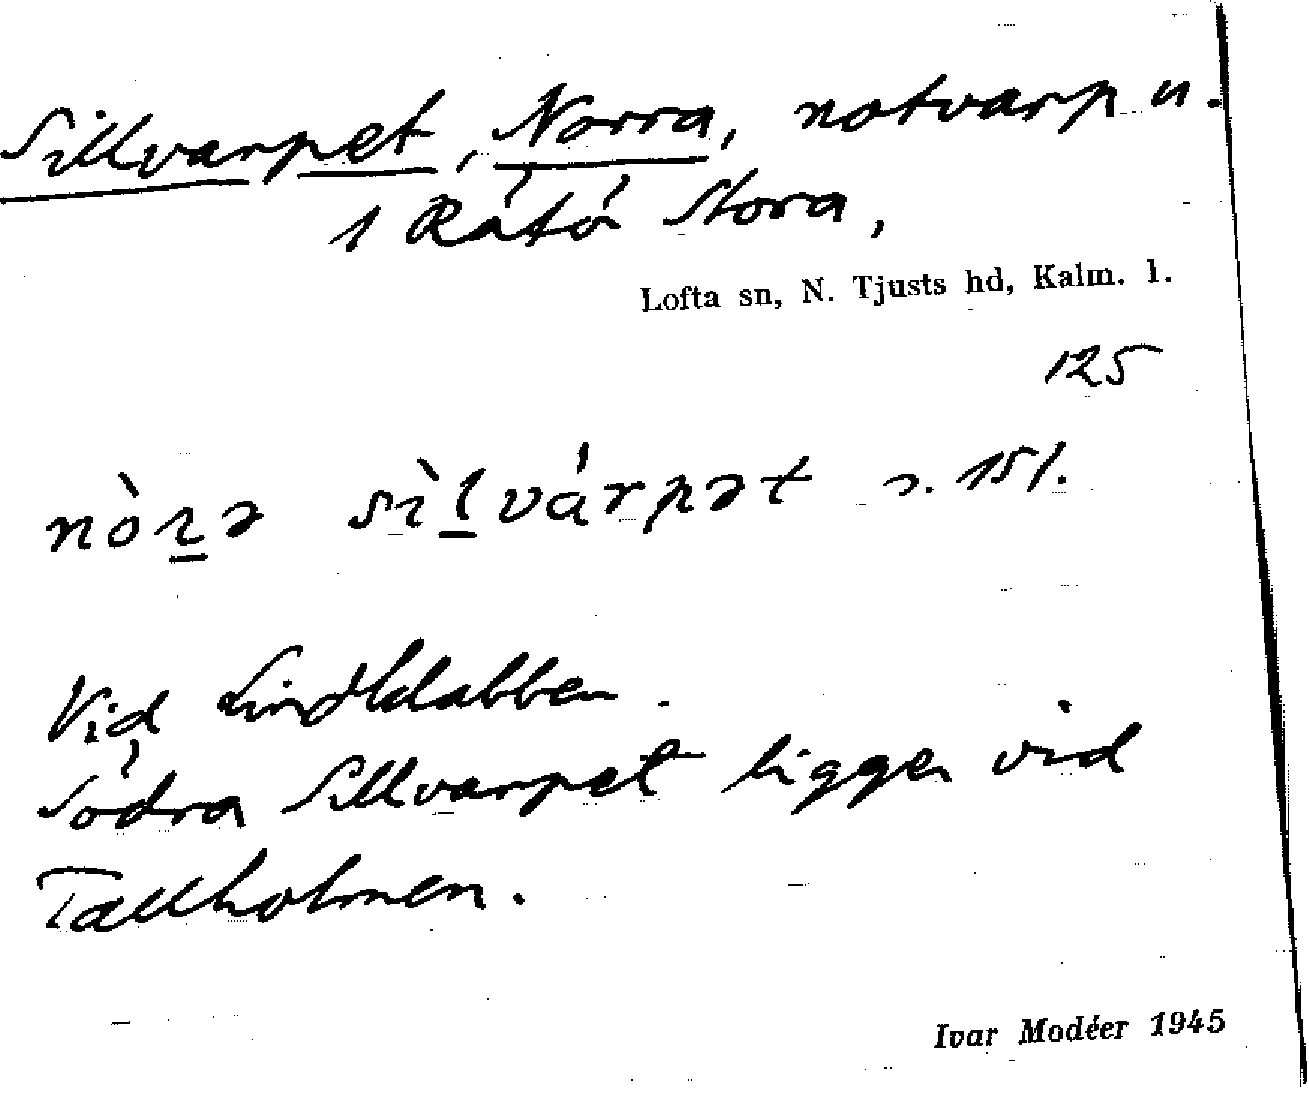 Sillvarpet, Norra, notvarp n.
1 Rätö Stora,
Lofta sn, N. Tjusts hd, Kalm. l.
125
nòrə sìlvárpət
Vid Lindkläbben.
Södra Sillvarpet ligger vid
Tallholmen.
Ivar Modéer 1945